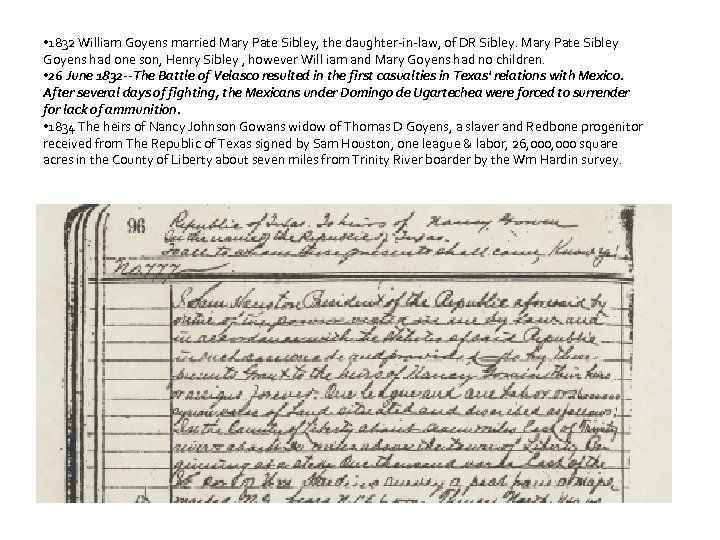 • 1832 William Goyens married Mary Pate Sibley, the daughter-in-law, of DR Sibley. Mary Pate Sibley
Goyens had one son, Henry Sibley , however Will iam and Mary Goyens had no children.
• 26 June 1832--The Battle of Velasco resulted in the first casualties in Texas' relations with Mexico.
After several days of fighting, the Mexicans under Domingo de Ugartechea were forced to surrender
for lack of ammunition.
• 1834 The heirs of Nancy Johnson Gowans widow of Thomas D Goyens, a slaver and Redbone progenitor
received from The Republic of Texas signed by Sam Houston, one league & labor, 26,000,000 square
acres in the County of Liberty about seven miles from Trinity River boarder by the Wm Hardin survey.
96 Republic of Texas. To heirs of Nancy Gowen
In the name of the Republic of Texas.
To all to whom these presents shall come Know ye!
No 777
I Sam Houston President of the Republic aforesaid by
virtue of the power vested in me by law and
in accordance with the Statutes of said Republic
in such case made and provided do by these
presents Grant to the heirs of Nancy their heirs
or assigns forever. One league and one Labor
of Land situated and described as follows:
In the County of Liberty about seven miles East of Trinity
river above the town of Liberty Be
ginning at a stake One thousand varas East of the
survey a post